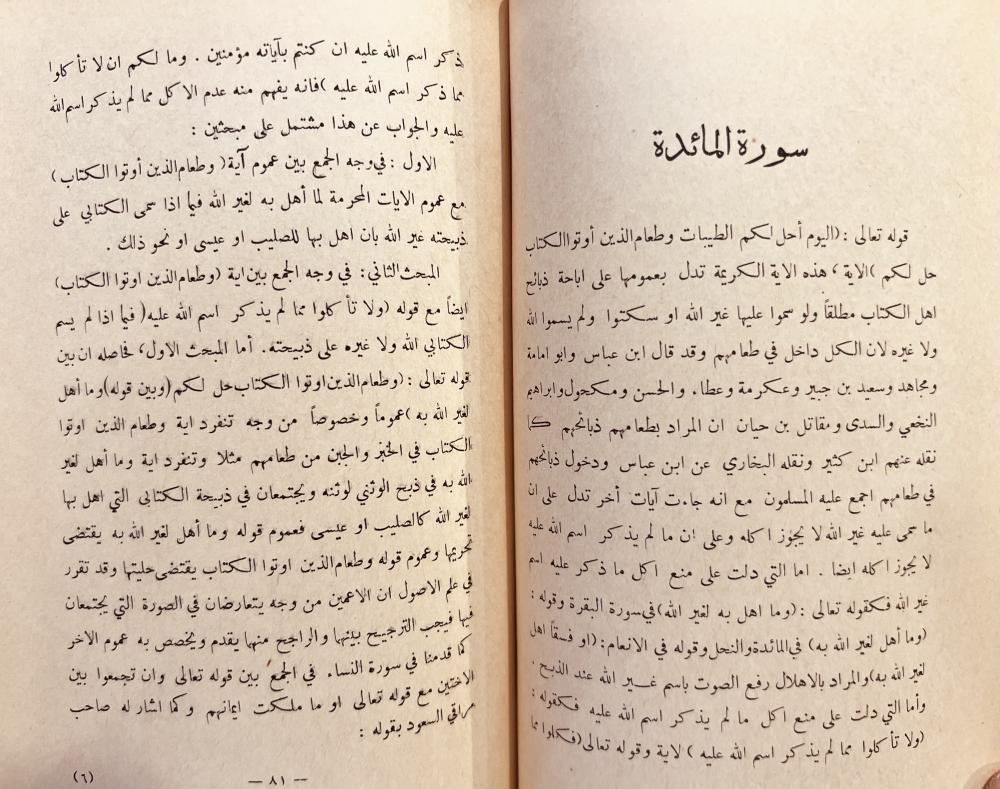 سورة المائدة
قوله تعالى : (اليوم أحل لكم الطيبات وطعام الذين أوتوا الكتاب
حل لكم )الاية ، هذه الاية الكريمة تدل بعمومها على اباحة ذبائح
اهل الكتاب مطلقاً ولو سموا عليها غير الله او سكتوا ولم يسموا الله
ولا غيره لان الكل داخل في طعامهم وقد قال ابن عباس وابو امامة
ومجاهد وسعيد بن جبير وعكرمة وعطاء والحسن ومكحول وابراهيم
النخعي والسدى ومقاتل بن حيان ان المراد بطعامهم ذبائحهم كما
نقله عنهم ابن كثير ونقله البخاري عن ابن عباس ودخول ذبائحهم
في طعامهم اجمع عليه المسلمون مع انه جاءت آيات أخر تدل على ان
ما سمى عليه غير الله لا يجوز اكله وعلى ان ما لم يذكر اسم الله عليه
لا يجوز اكله ايضا . اما التي دلت على منع اكل ما ذكر عليه اسم
غير الله فكقوله تعالى : (وما اهل به لغير الله) في سورة البقرة وقوله :
(وما أهل لغير الله به) في المائدة والنحل وقوله في الانعام : (او فسقاً اهل
لغير الله به) والمراد بالاهلال رفع الصوت باسم غير الله عند الذبح .
وأما التي دلت على منع اكل ما لم يذكر اسم الله عليه فكقوله :
(ولا تأكلوا مما لم يذكر اسم الله عليه ) لاية وقوله تعالى (فكلوا مما
ذكر اسم الله عليه ان كنتم بآياته مؤمنين . وما لكم ان لا تأكلوا
مما ذكر اسم الله عليه )فانه يفهم منه عدم الاكل مما لم يذكر اسم الله
عليه والجواب عن هذا مشتمل على مبحثين :
الاول : في وجه الجمع بين عموم آية ( وطعام الذين أوتوا الكتاب)
مع عموم الايات المحرمة لما أهل به لغير الله فيما اذا سمى الكتابي على
ذبيحته غير الله بان اهل بها للصليب او عيسى او نحو ذلك .
المبحث الثاني : في وجه الجمع بين اية (وطعام الذين اوتوا الكتاب)
ايضاً مع قوله (ولا تأكلوا مما لم يذكر اسم الله عليه( فيما اذا لم يسم
الكتابي الله ولا غيره على ذبيحته. أما المبحث الاول، فحاصله ان بين
قوله تعالى : (وطعام الذين اوتوا الكتاب حل لكم (وبين قوله) وما أهل
لغير الله به )عموماً وخصوصاً من وجه تنفرد اية وطعام الذين اوتوا
الكتاب في الخبز والجبن من طعامهم مثلا وتنفرد اية وما أهل لغير
الله به في ذبح الوثني لوثنه ويجتمعان في ذبيحة الكتابى التي اهل بها
لغير الله كالصليب او عيسى فعموم قوله وما أهل لغير الله به يقتضى
تحريمها وعموم قوله وطعام الذين اوتوا الكتاب يقتضى حليتها وقد تقرر
في علم الاصول ان الاعمين من وجه يتعارضان في الصورة التي يجتمعان
فيها فيجب الترجيح بينهما والراجح منهما يقدم ويخصص به عموم الاخر
كما قدمنا في سورة النساء في الجمع بين قوله تعالى وان تجمعوا بين
الاختين مع قوله تعالى او ما ملكت ايمانهم وكما اشار له صاحب
مراقي السعود بقوله :
— ٨١ —
(٦)